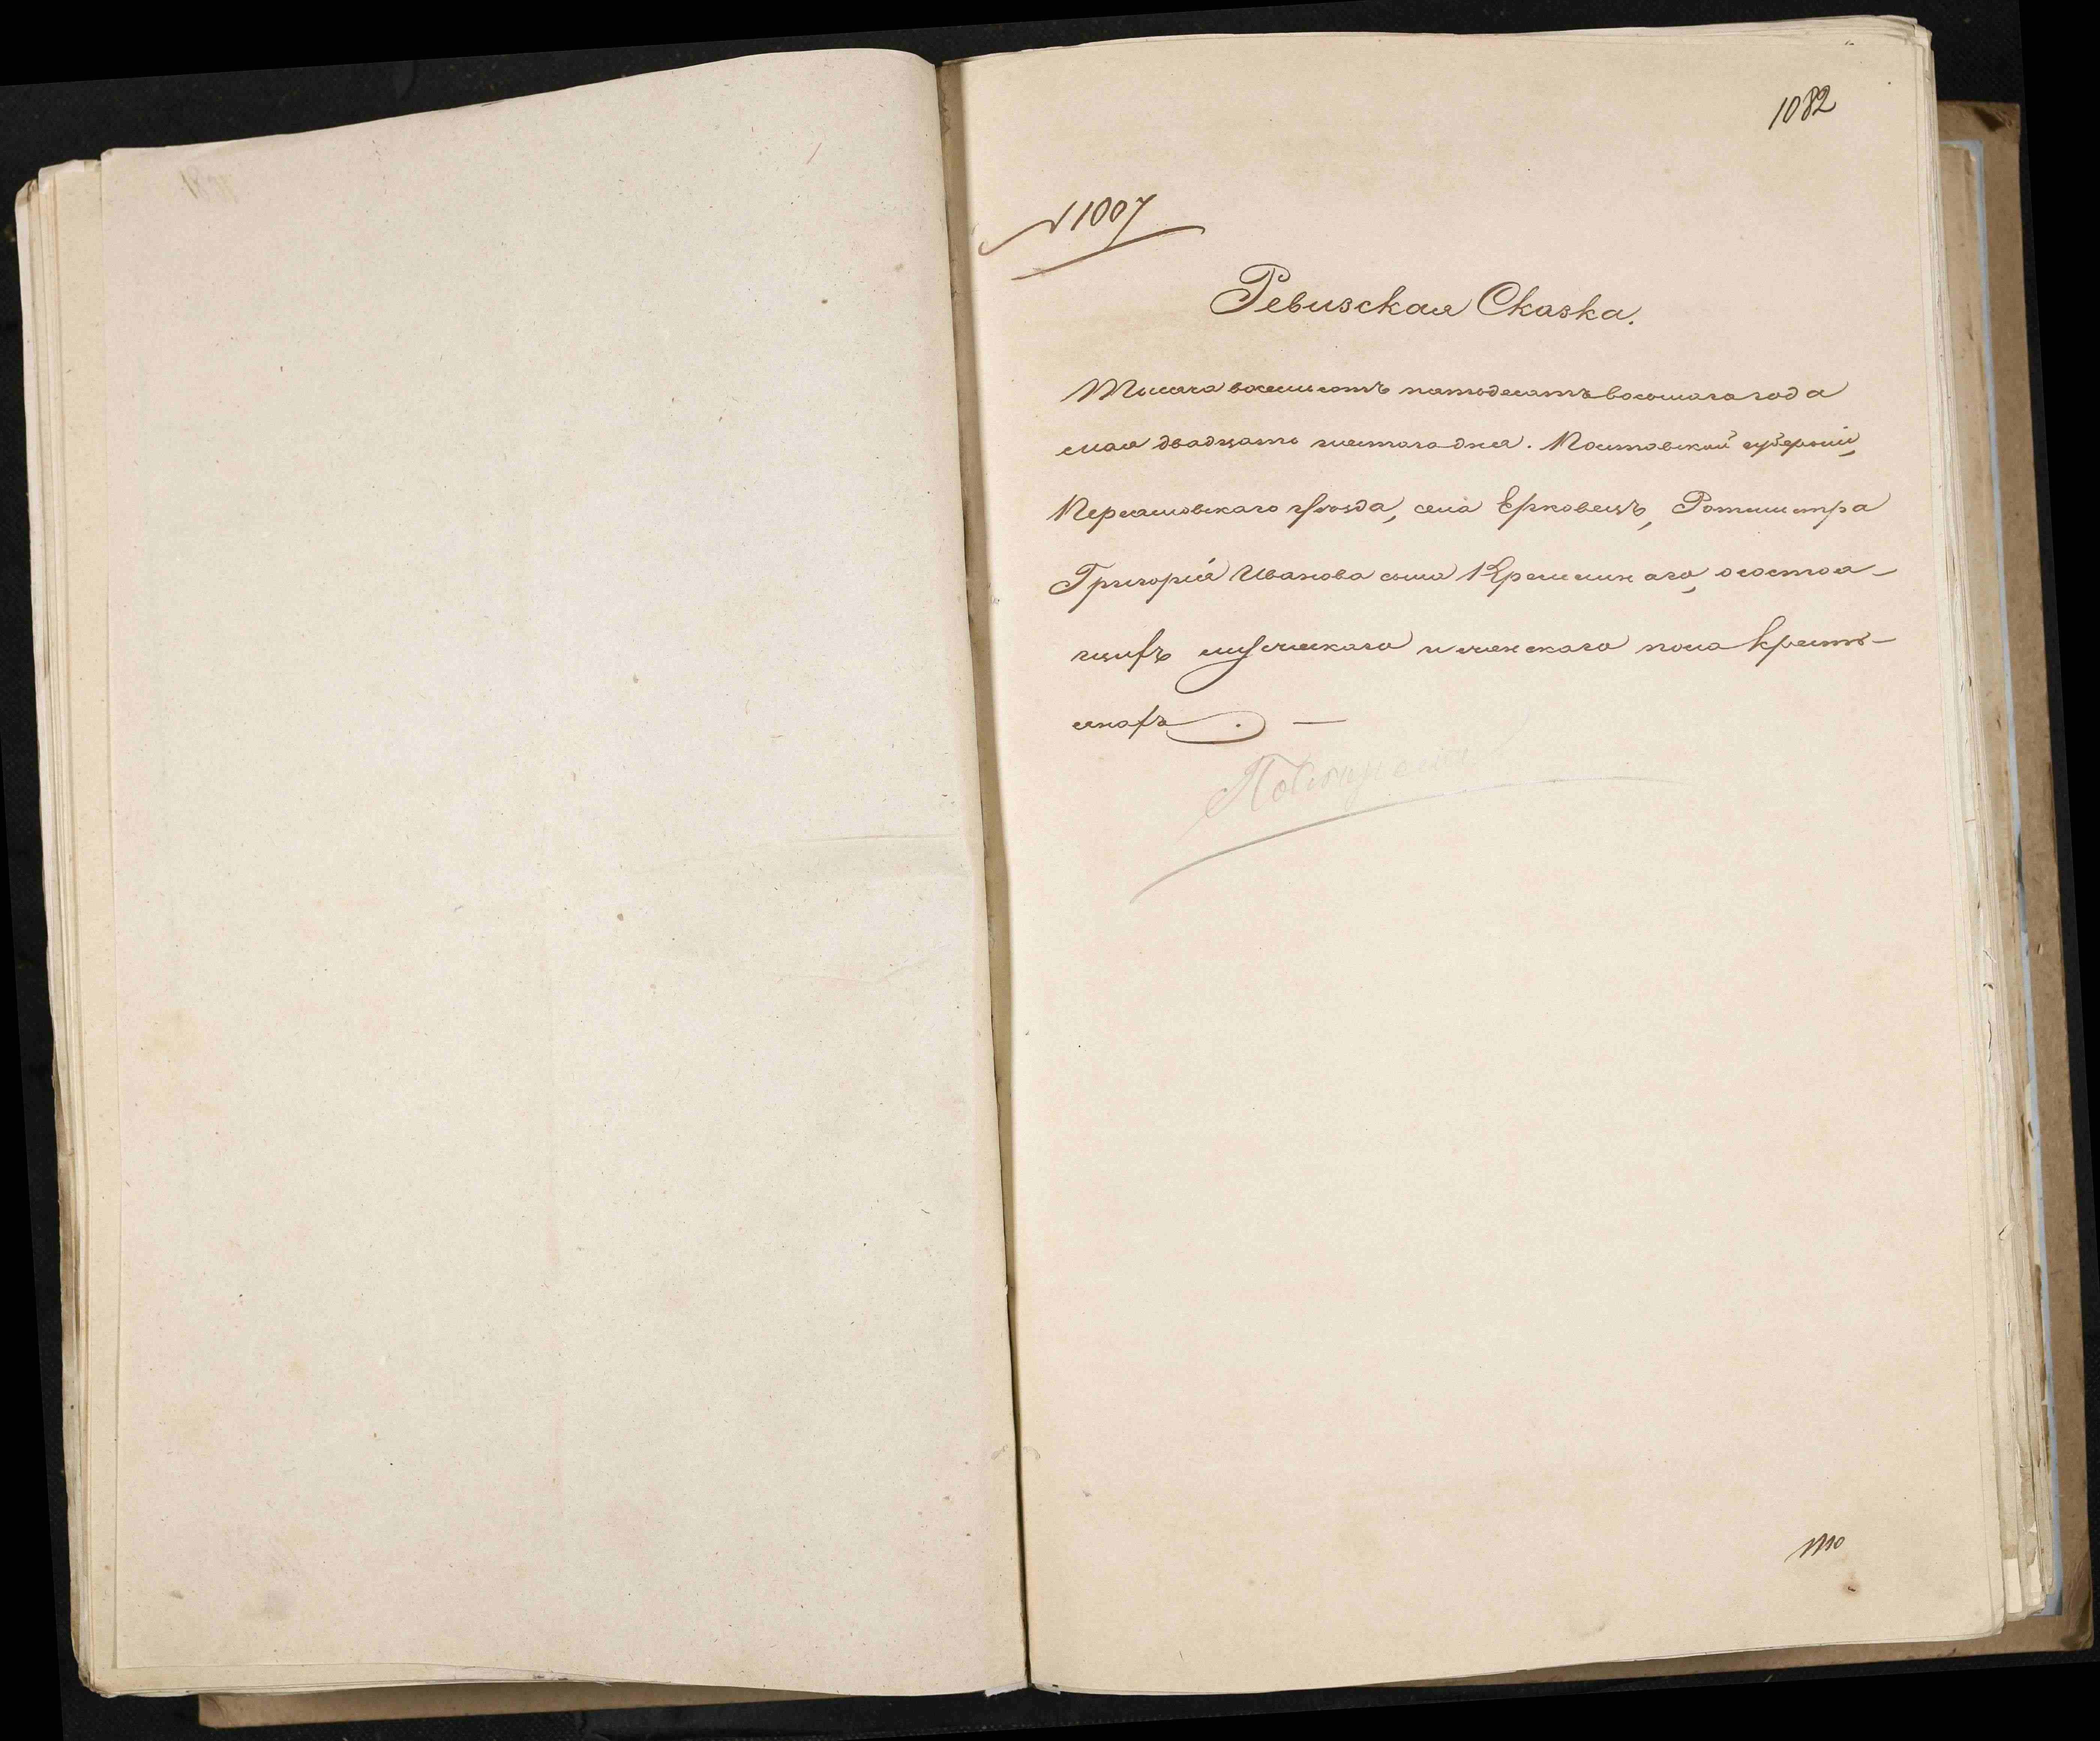 1082
№ 1007
Ревизская Сказка.
Тысяча восемьсотъ пятьдесятъ восьмаго года
мая двадцать шестаго дня. Полтавской губерніи,
Переяславскаго уѣзда, села Ерковецъ, Ротмистра
Григорія Иванова сына о состоя-
щихъ мужескаго и женскаго пола кресть-
янахъ. —